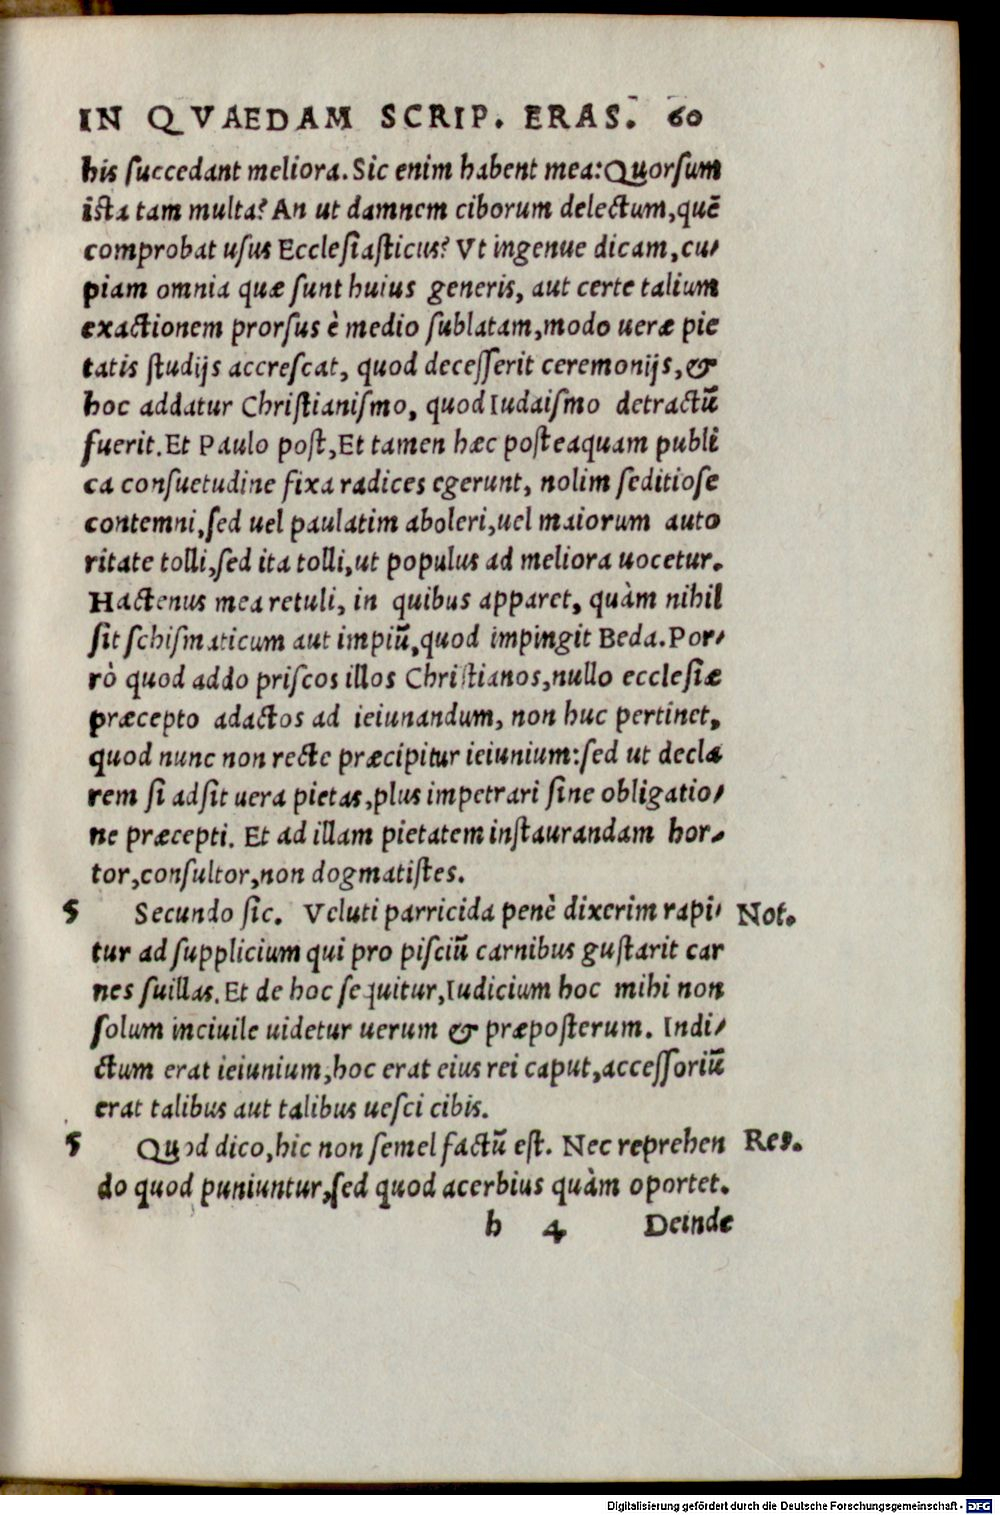 IN QVAEDAM SCRIP. ERAS. 60
his succedant meliora. Sic enim habent mea: Quorsum
ista tam multa? An ut damnem ciborum delectum, quē
comprobat usus Ecclesiasticus? Vt ingenue dicam, cu-
piam omnia quæ sunt huius generis, aut certe talium
exactionem prorsus è medio sublatam, modo ueræ pie
tatis studijs accrescat, quod decesserit ceremonijs, &
hoc addatur Christianismo, quod Iudaismo detractū
fuerit. Et Paulo post, Et tamen hæc posteaquam publi
ca consuetudine fixa radices egerunt, nolim seditiose
contemni, sed uel paulatim aboleri, uel maiorum auto
ritate tolli, sed ita tolli, ut populus ad meliora uocetur.
Hactenus mea retuli, in quibus apparet, quàm nihil
sit schismaticum aut impiū, quod impingit Beda. Por-
rò quod addo priscos illos Christianos, nullo ecclesiæ
præcepto adactos ad ieiunandum, non huc pertinet,
quod nunc non recte præcipitur ieiunium: sed ut decla
rem si adsit uera pietas, plus impetrari sine obligatio-
ne præcepti. Et ad illam pietatem instaurandam hor-
tor, consultor, non dogmatistes.
5 Secundo sic. Veluti parricida penè dixerim rapi- Not.
tur ad supplicium qui pro pisciū carnibus gustarit car
nes suillas. Et de hoc sequitur, Iudicium hoc mihi non
solum inciuile uidetur uerum & præposterum. Indi-
ctum erat ieiunium, hoc erat eius rei caput, accessoriū
erat talibus aut talibus uesci cibis.
5 Quod dico, hic non semel factū est. Nec reprehen Res.
do quod puniuntur, sed quod acerbius quàm oportet.
h 4 Deinde
Digitalisierung gefördert durch die Deutsche Forschungsgemeinschaft - DFG